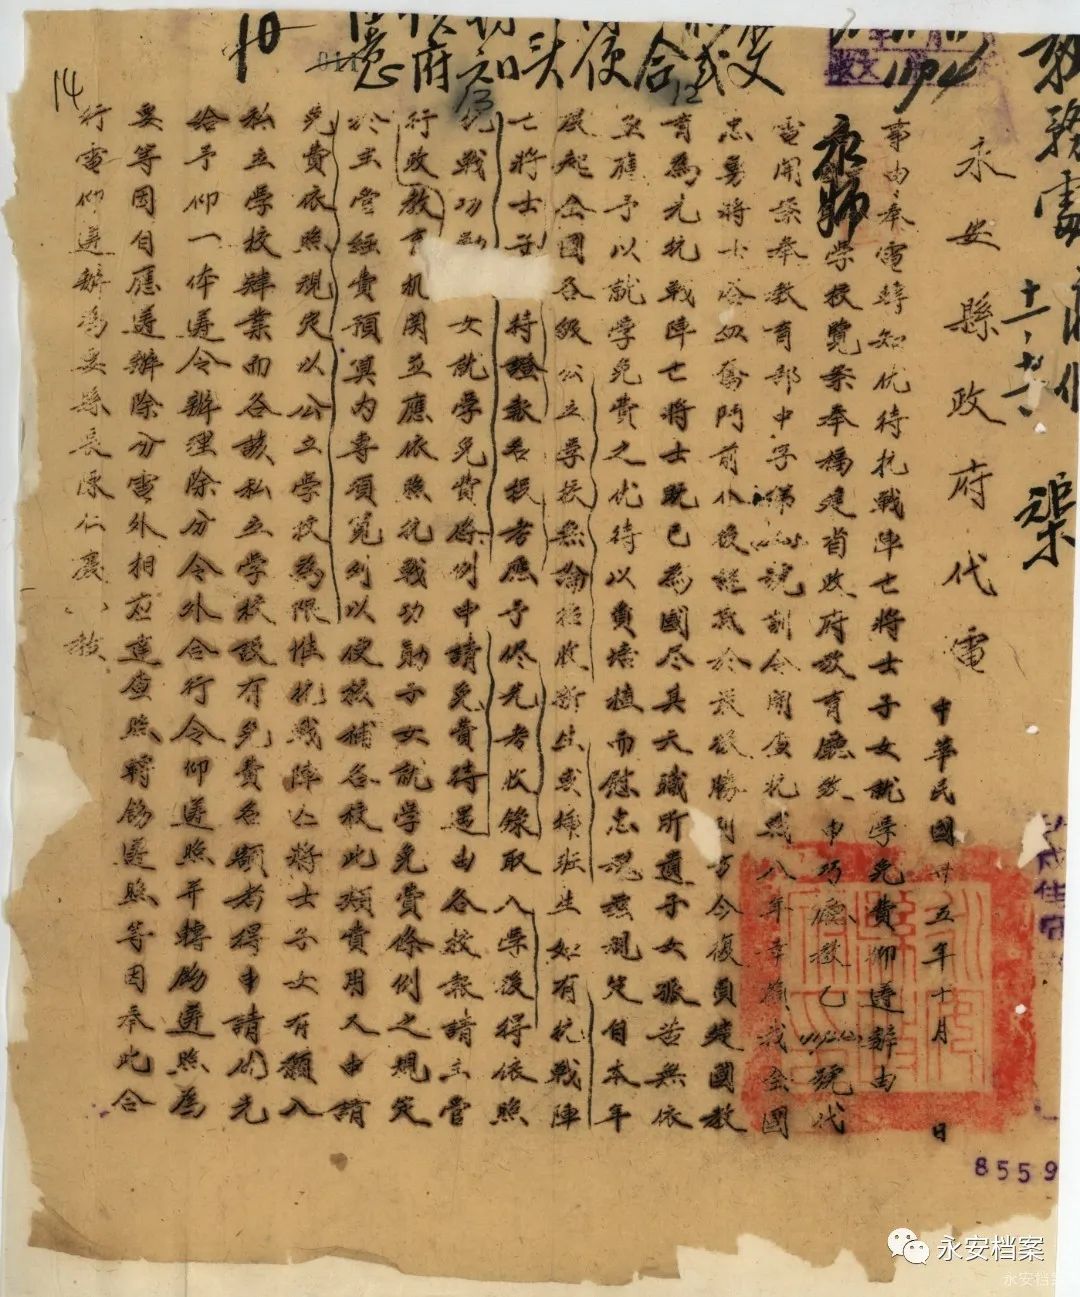 永安縣政府代電
中華民國卅五年十月　日
事由奉電轉知优待抗戰陣亡將士子女就學免費仰遵辦由
永師學校覽案奉福建省政府教育廳致申巧德教乙　號代
電開案奉教育部申字第　號訓令開查抗戰八年幸賴我全國
忠勇將士浴血奮鬥前仆後継终於获致勝利方今復員建國教
育為先抗戰陣亡將士既已為國尽其天職所遺子女孤苦無依
亟應予以就學免費之优待以資培植而慰忠魂兹規定自本年
度起全國各級公立學校無論招收新生或插班生如有抗戰陣
亡將士子　持證報名投考應予侭先考收錄取入學後得依照
抗戰功勛　女就學免費條例申請免費待遇由各校報請主管
行政教育机関並應依照抗戰功勛子女就學免費條例之規定
於主管經費預算內專項寬列以便核補各校此項費用又申請
免費依照規定以公立學校為限惟抗戰陣亡將士子女有願入
私立學校肄業而各該私立學校設有免費名額者得申請优先
給予仰一体遵令辦理除分令外合行令仰遵照并轉飭遵照為
要等因自應遵辦除分電外相應達查照轉飭遵照等因奉此合
行電仰遵辦為要縣長陳仁慶　教
教務處
十一
14
10
13
12
8559
永安档案
永安档案